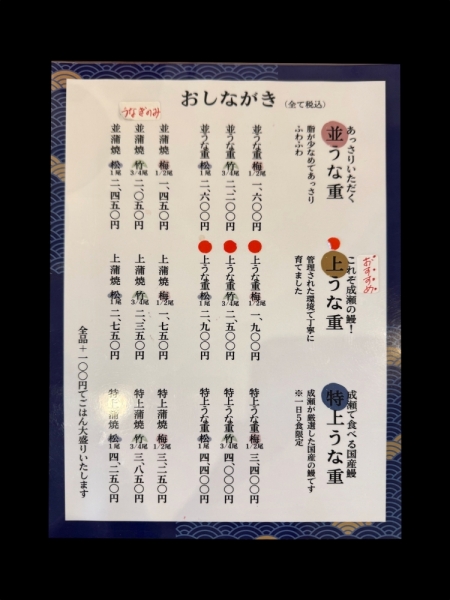 おしながき (全て税込)
あっさりいただく
並うな重
脂が少なめであっさり
ふわふわ
並うな重 梅 1/2尾 一、六〇〇円
並うな重 竹 3/4尾 二、二〇〇円
並うな重 松 1尾 二、六〇〇円
うなぎのみ
並蒲焼 梅 1/2尾 一、四五〇円
並蒲焼 竹 3/4尾 二、〇五〇円
並蒲焼 松 1尾 二、四五〇円
おすすめ
これぞ成瀬の鰻!
上うな重
管理された環境で丁寧に
育てました
上うな重 梅 1/2尾 一、九〇〇円
上うな重 竹 3/4尾 二、五〇〇円
上うな重 松 1尾 二、九〇〇円
上蒲焼 梅 1/2尾 一、七五〇円
上蒲焼 竹 3/4尾 二、三五〇円
上蒲焼 松 1尾 二、七五〇円
成瀬で食べる国産鰻
特上うな重
成瀬が厳選した国産の鰻です
※一日5食限定
特上うな重 梅 1/2尾 三、四〇〇円
特上うな重 竹 3/4尾 四、〇〇〇円
特上うな重 松 1尾 四、四〇〇円
特上蒲焼 梅 1/2尾 三、二五〇円
特上蒲焼 竹 3/4尾 三、八五〇円
特上蒲焼 松 1尾 四、二五〇円
全品+一〇〇円でごはん大盛りいたします